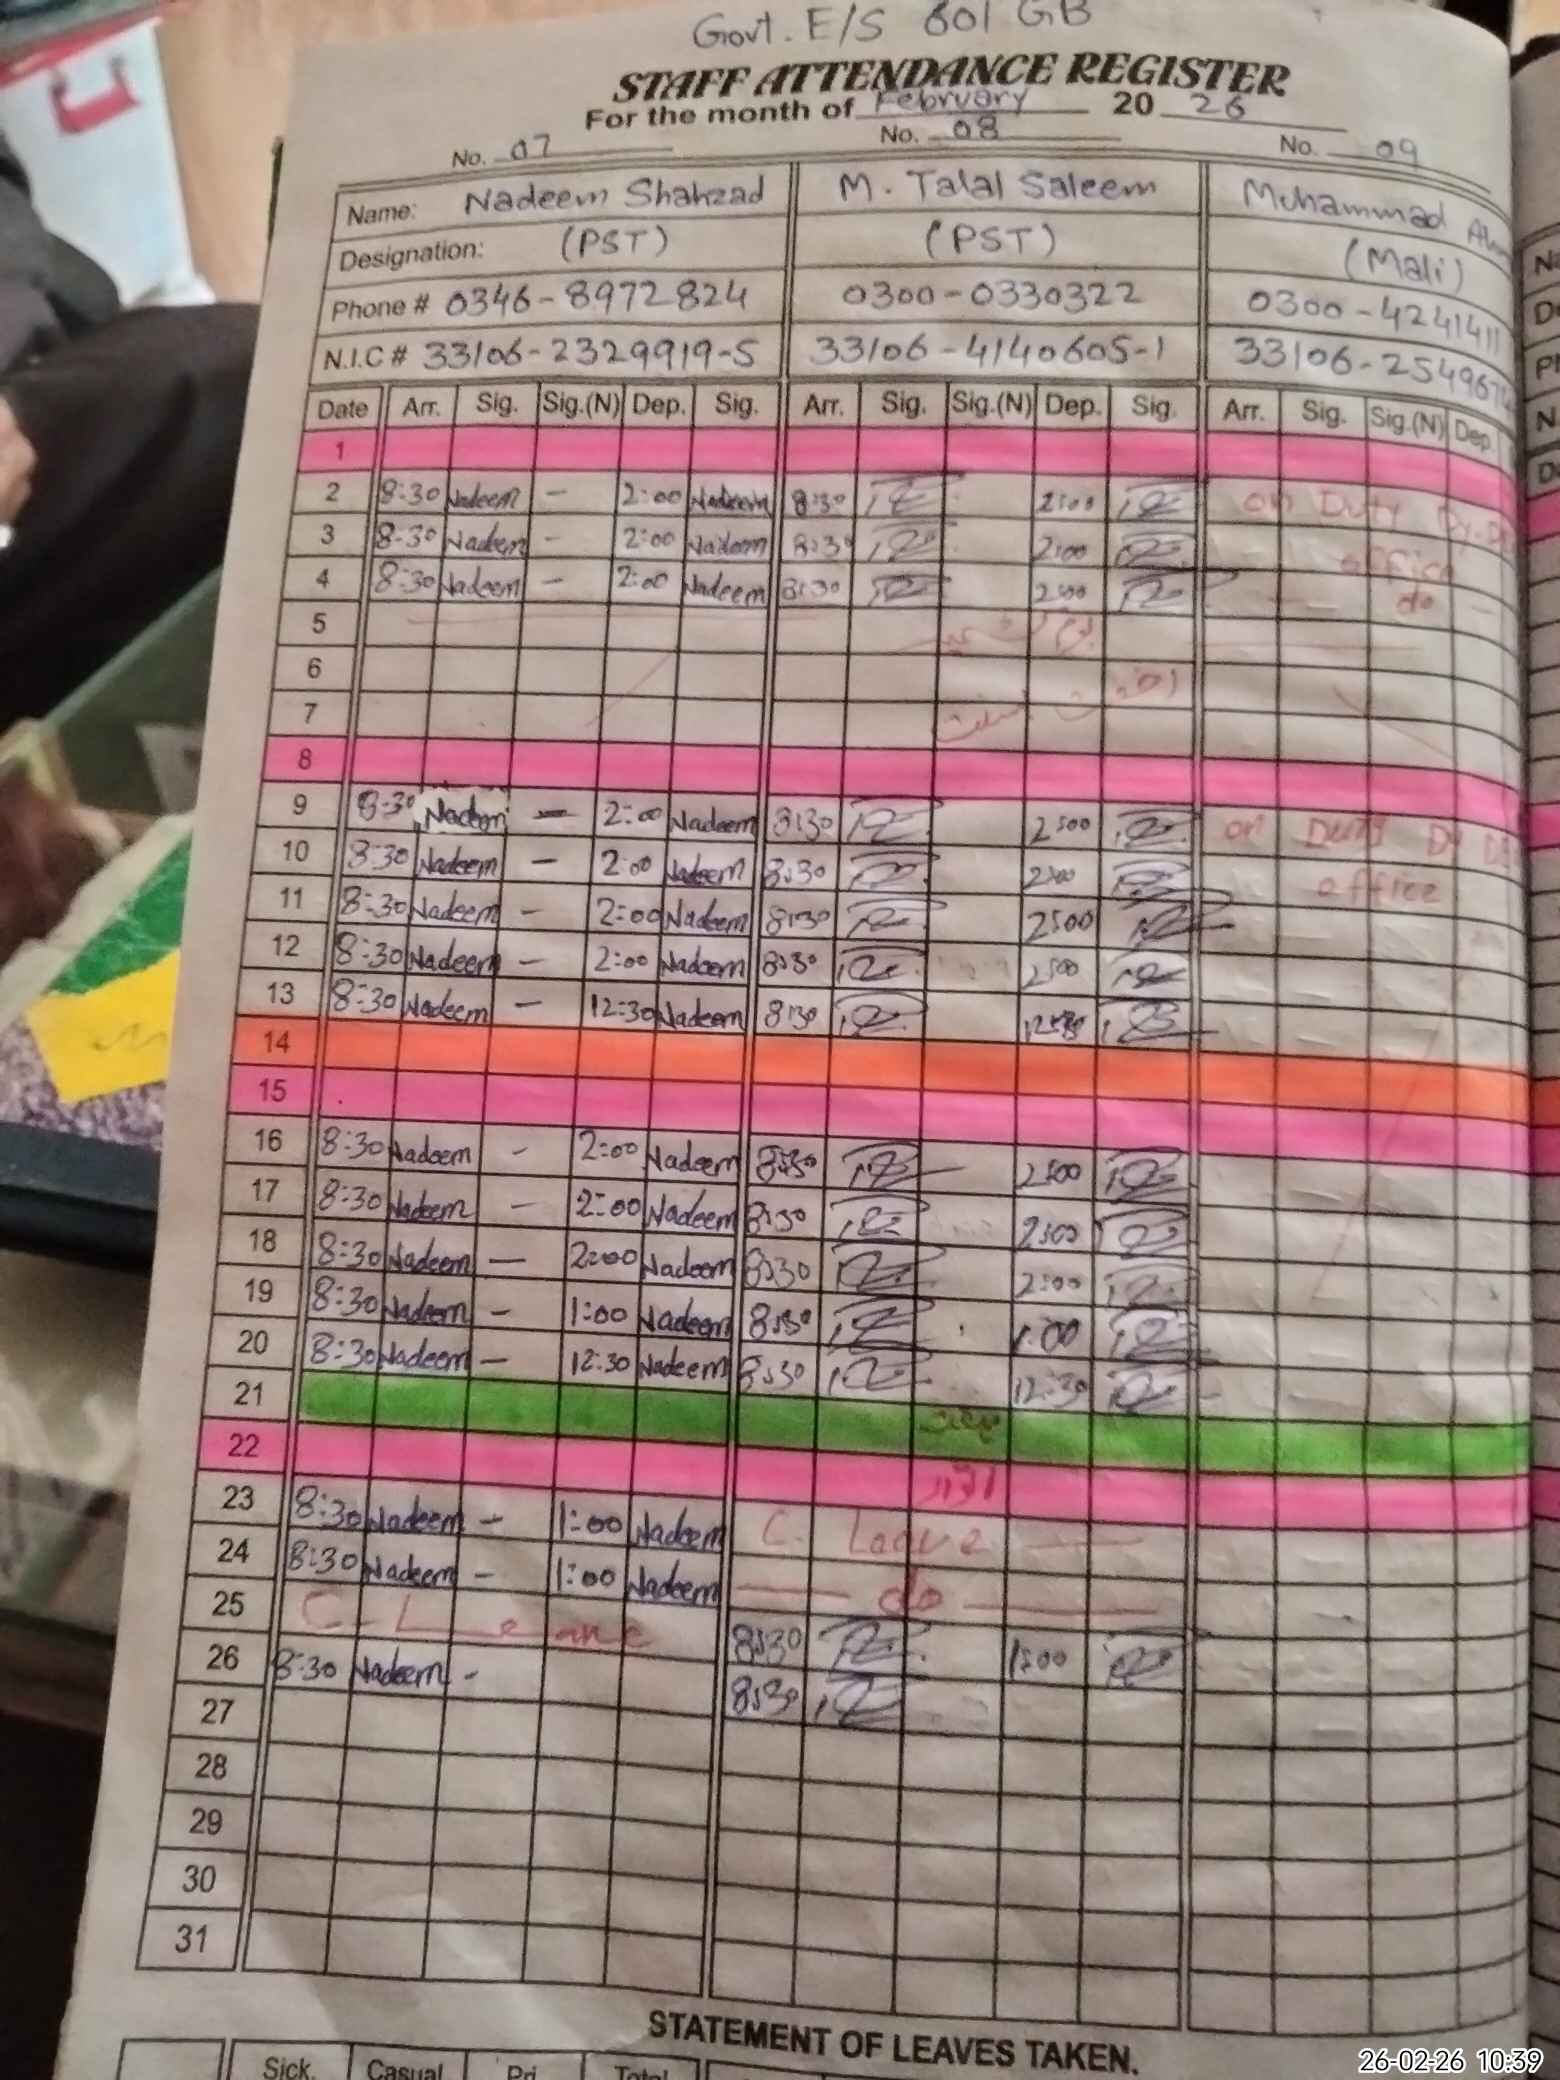 Govt. E/S 601 GB
STAFF ATTENDANCE REGISTER
For the month of February 20 26
No. 07 No. 08 No. 09
Name: Nadeem Shahzad M. Talal Saleem Muhammad
Designation: (PST) (PST) (Mali)
Phone # 0346-8972824 0300-0330322 0300-4241411
N.I.C # 33106-2329919-5 33106-4140605-1 33106-254967
Date Arr. Sig. Sig.(N) Dep. Sig. Arr. Sig. Sig.(N) Dep. Sig. Arr. Sig. Sig.(N) Dep.
1
2 8:30 Nadeem - 2:00 Nadeem 8:30 2:00 on Duty
3 8:30 Nadeem - 2:00 Nadeem 8:30 2:00 office
4 8:30 Nadeem - 2:00 Nadeem 8:30 2:00 do
5
6
7
8
9 8:30 Nadeem - 2:00 Nadeem 8:30 2:00 on
10 8:30 Nadeem - 2:00 Nadeem 8:30 2:00 office
11 8:30 Nadeem - 2:00 Nadeem 8:30 2:00
12 8:30 Nadeem - 2:00 Nadeem 8:30 2:00
13 8:30 Nadeem - 12:30 Nadeem 8:30 12:30
14
15
16 8:30 Nadeem - 2:00 Nadeem 8:30 2:00
17 8:30 Nadeem - 2:00 Nadeem 8:30 2:00
18 8:30 Nadeem - 2:00 Nadeem 8:30 2:00
19 8:30 Nadeem - 1:00 Nadeem 8:30 1:00
20 8:30 Nadeem - 12:30 Nadeem 8:30 12:30
21
22 اتوار
23 8:30 Nadeem - 1:00 Nadeem C. Leave
24 8:30 Nadeem - 1:00 Nadeem do
25 C-Leave 8:30 1:00
26 8:30 Nadeem - 8:30
27
28
29
30
31
STATEMENT OF LEAVES TAKEN.
Sick. Casual Pri Total
26-02-26 10:39